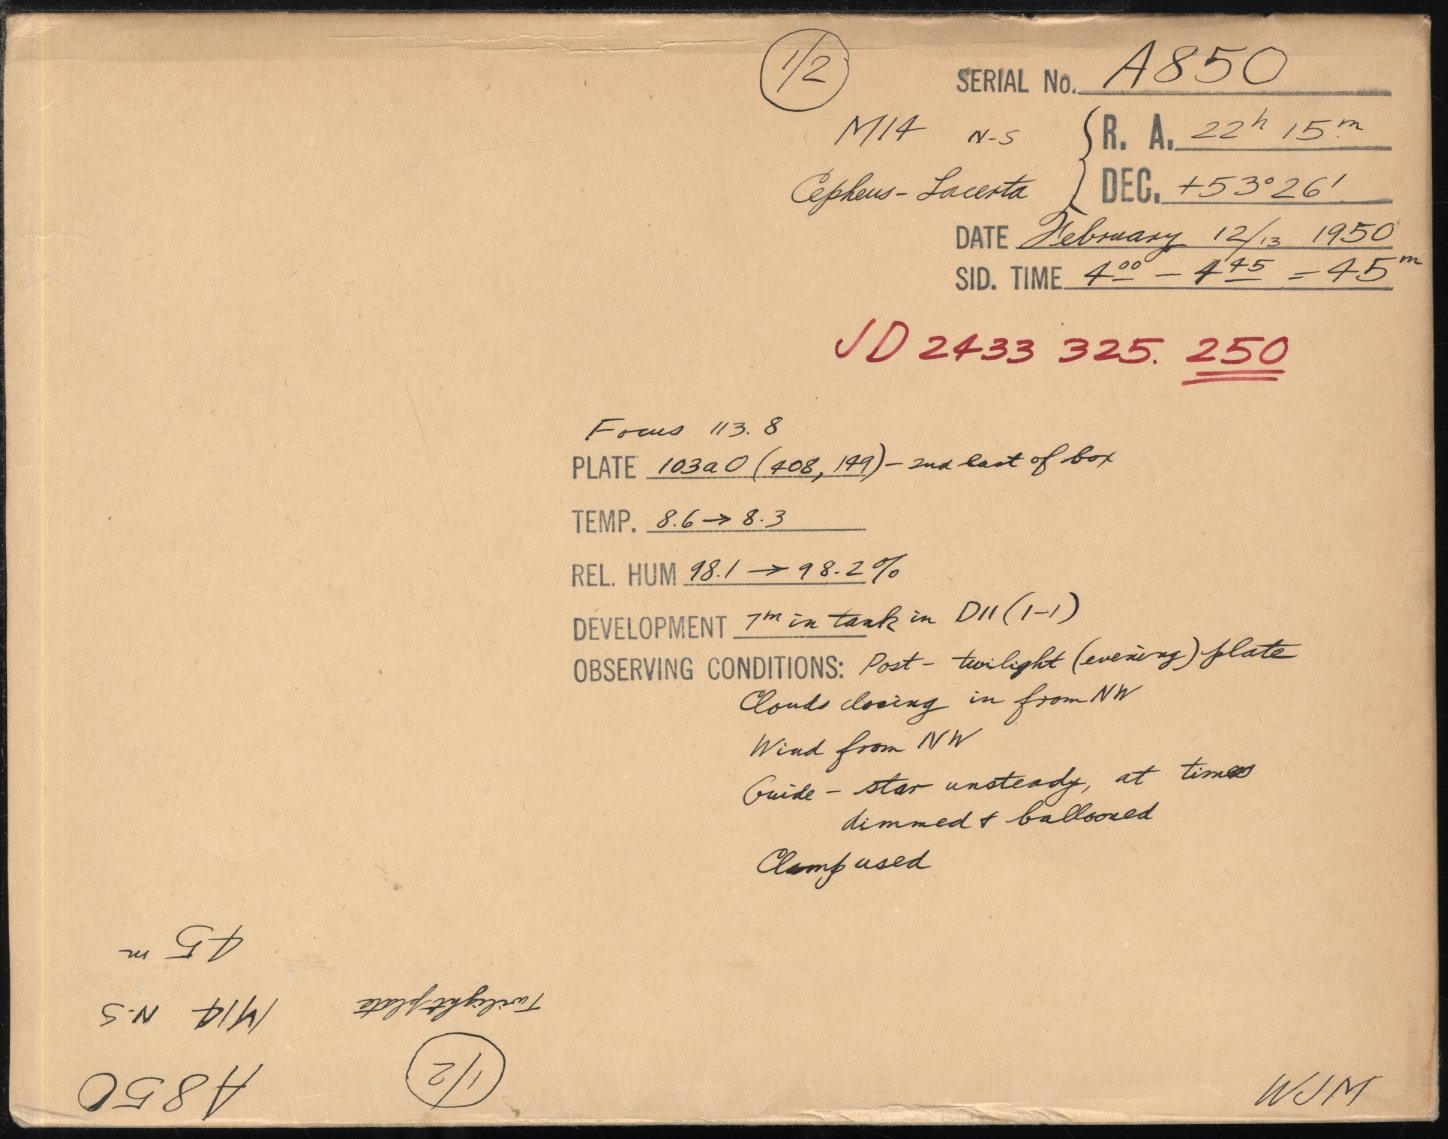 1/2
SERIAL No. A850
M14 N-S
R. A. 22h 15m
Cepheus - Lacerta
DEC. +53°26'
DATE February 12/13 1950
SID. TIME 4 00 - 4 45 = 45m
JD 2433 325. 250
Focus 113.8
PLATE 103aO (408, 149) - 2nd last of box
TEMP. 8.6 → 8.3
REL. HUM 98.1 → 98.2%
DEVELOPMENT 7m in tank in D11 (1-1)
OBSERVING CONDITIONS: Post - twilight (evening) plate
Clouds closing in from NW
Wind from NW
Guide - star unsteady, at times
dimmed & ballooned
Clamp used
WJM
A850
1/2
M14 N-S
Twilight plate
45 m